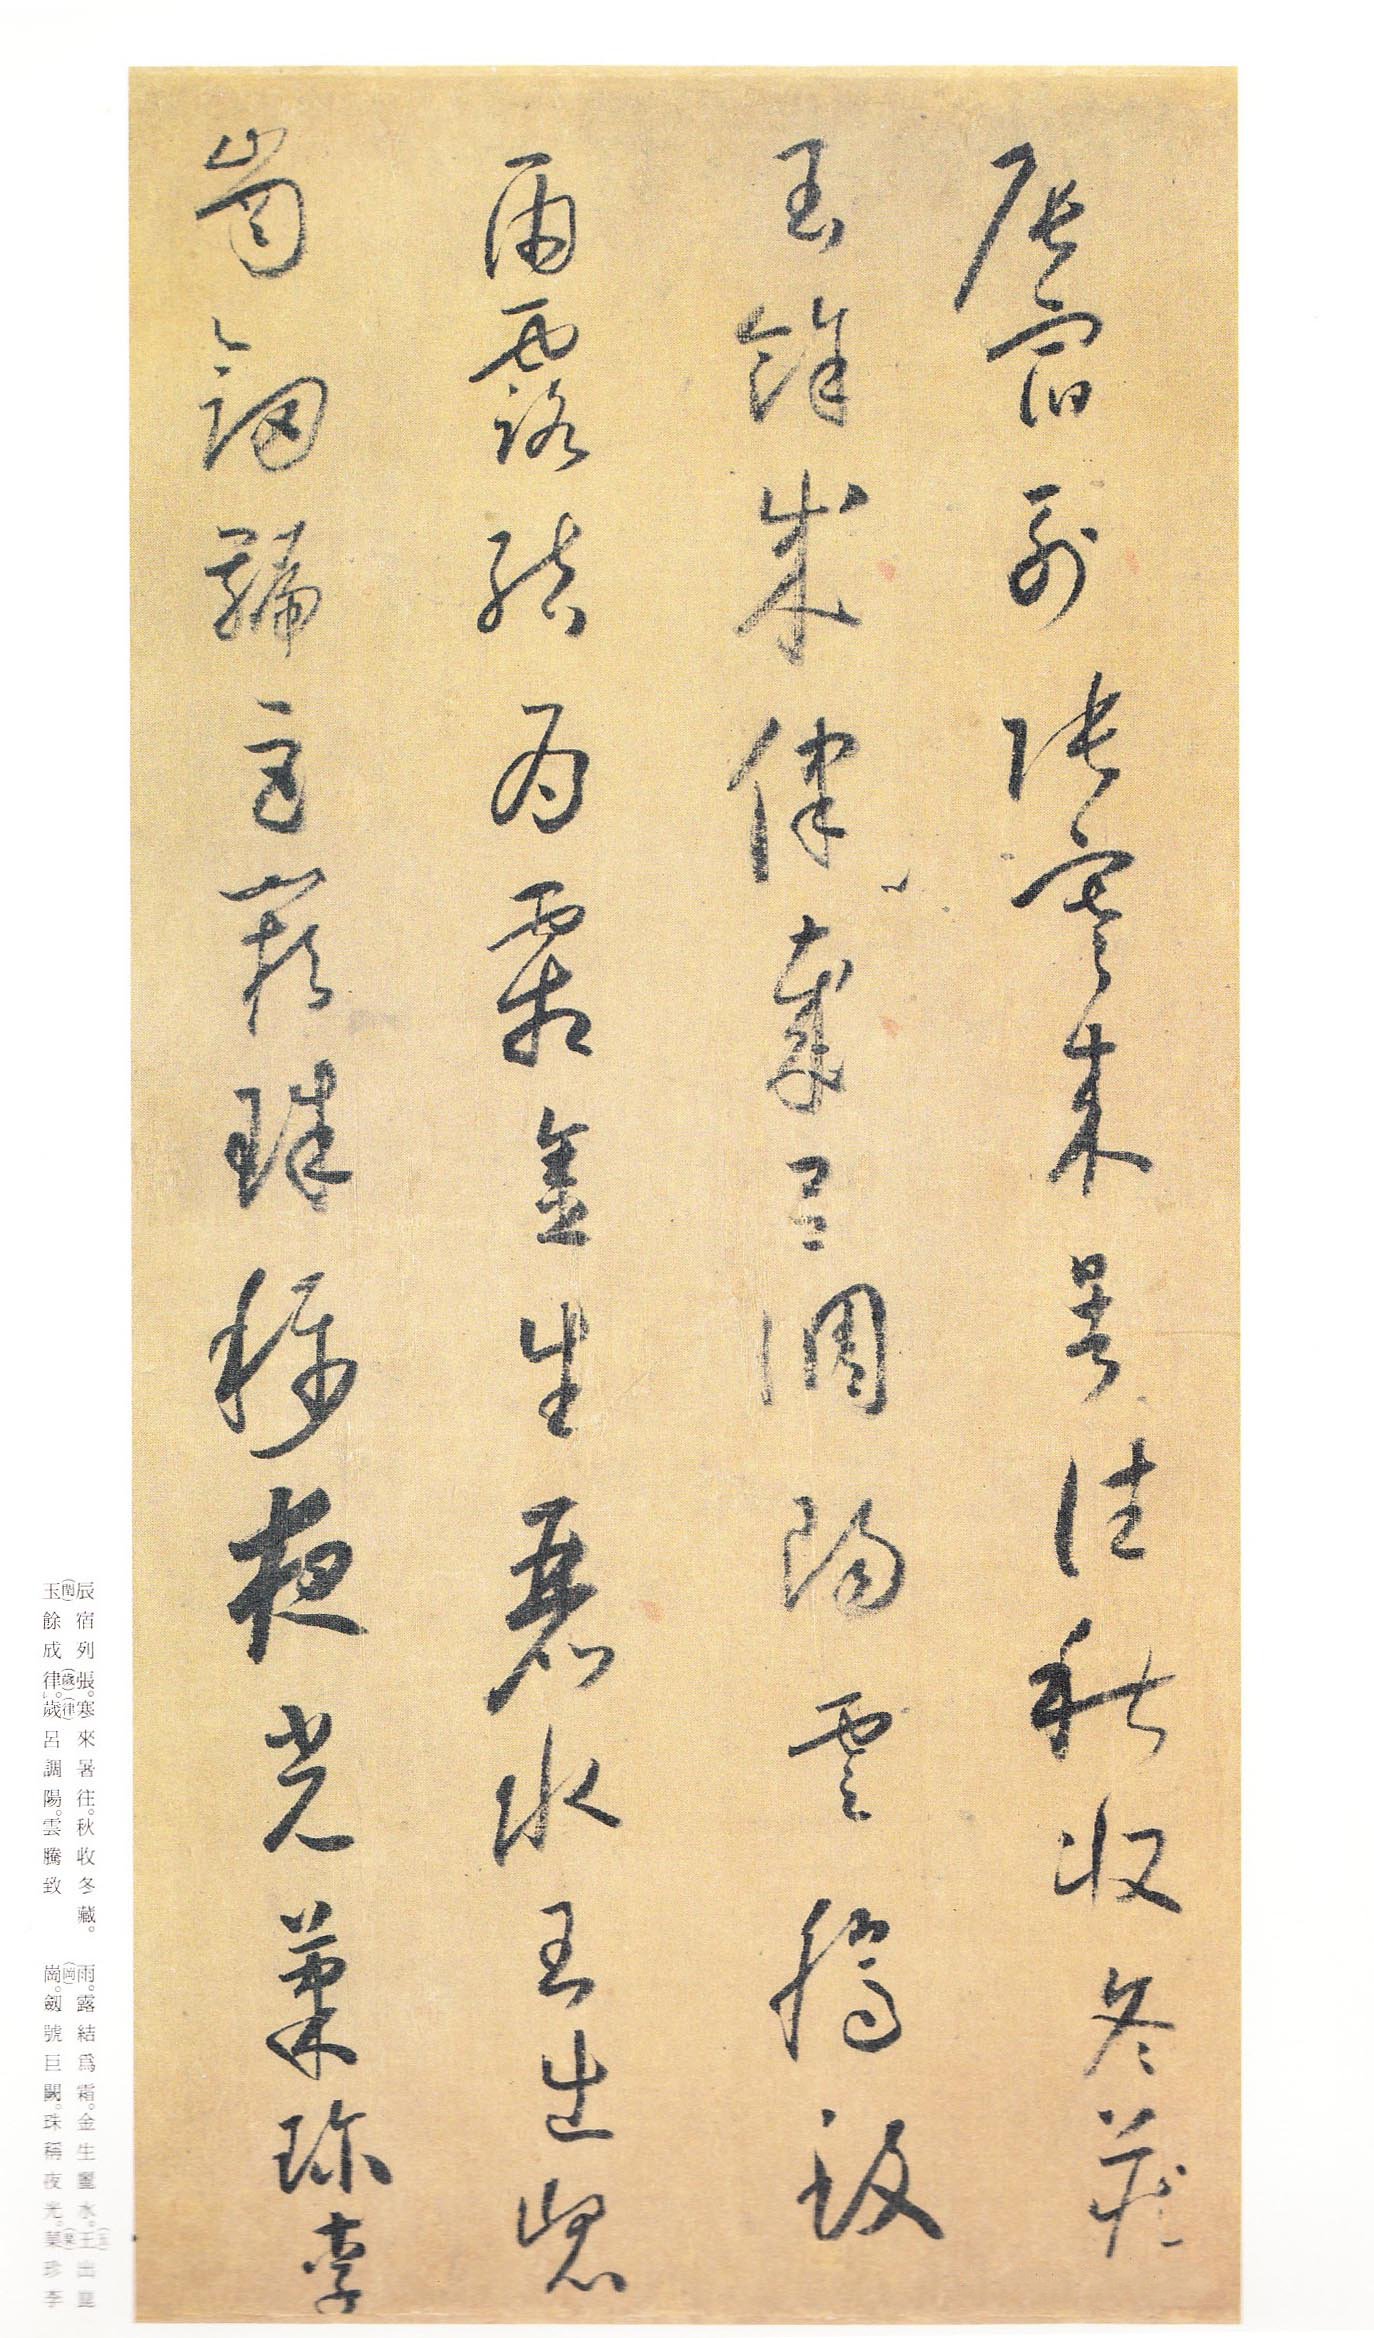 辰宿列張寒來暑往秋收冬藏
玉餘成律歲呂調陽雲騰致
雨露結為霜金生麗水玉出崑
崗劍號巨闕珠稱夜光菓珍李
辰宿列張。寒來暑往。秋收冬藏。
玉(閏)餘成律(歲)。歲(律)呂調陽。雲騰致
雨。露結爲霜。金生麗水。王(玉)出崑
崗(岡)。劔號巨闕。珠稱夜光。菓(果)珍李